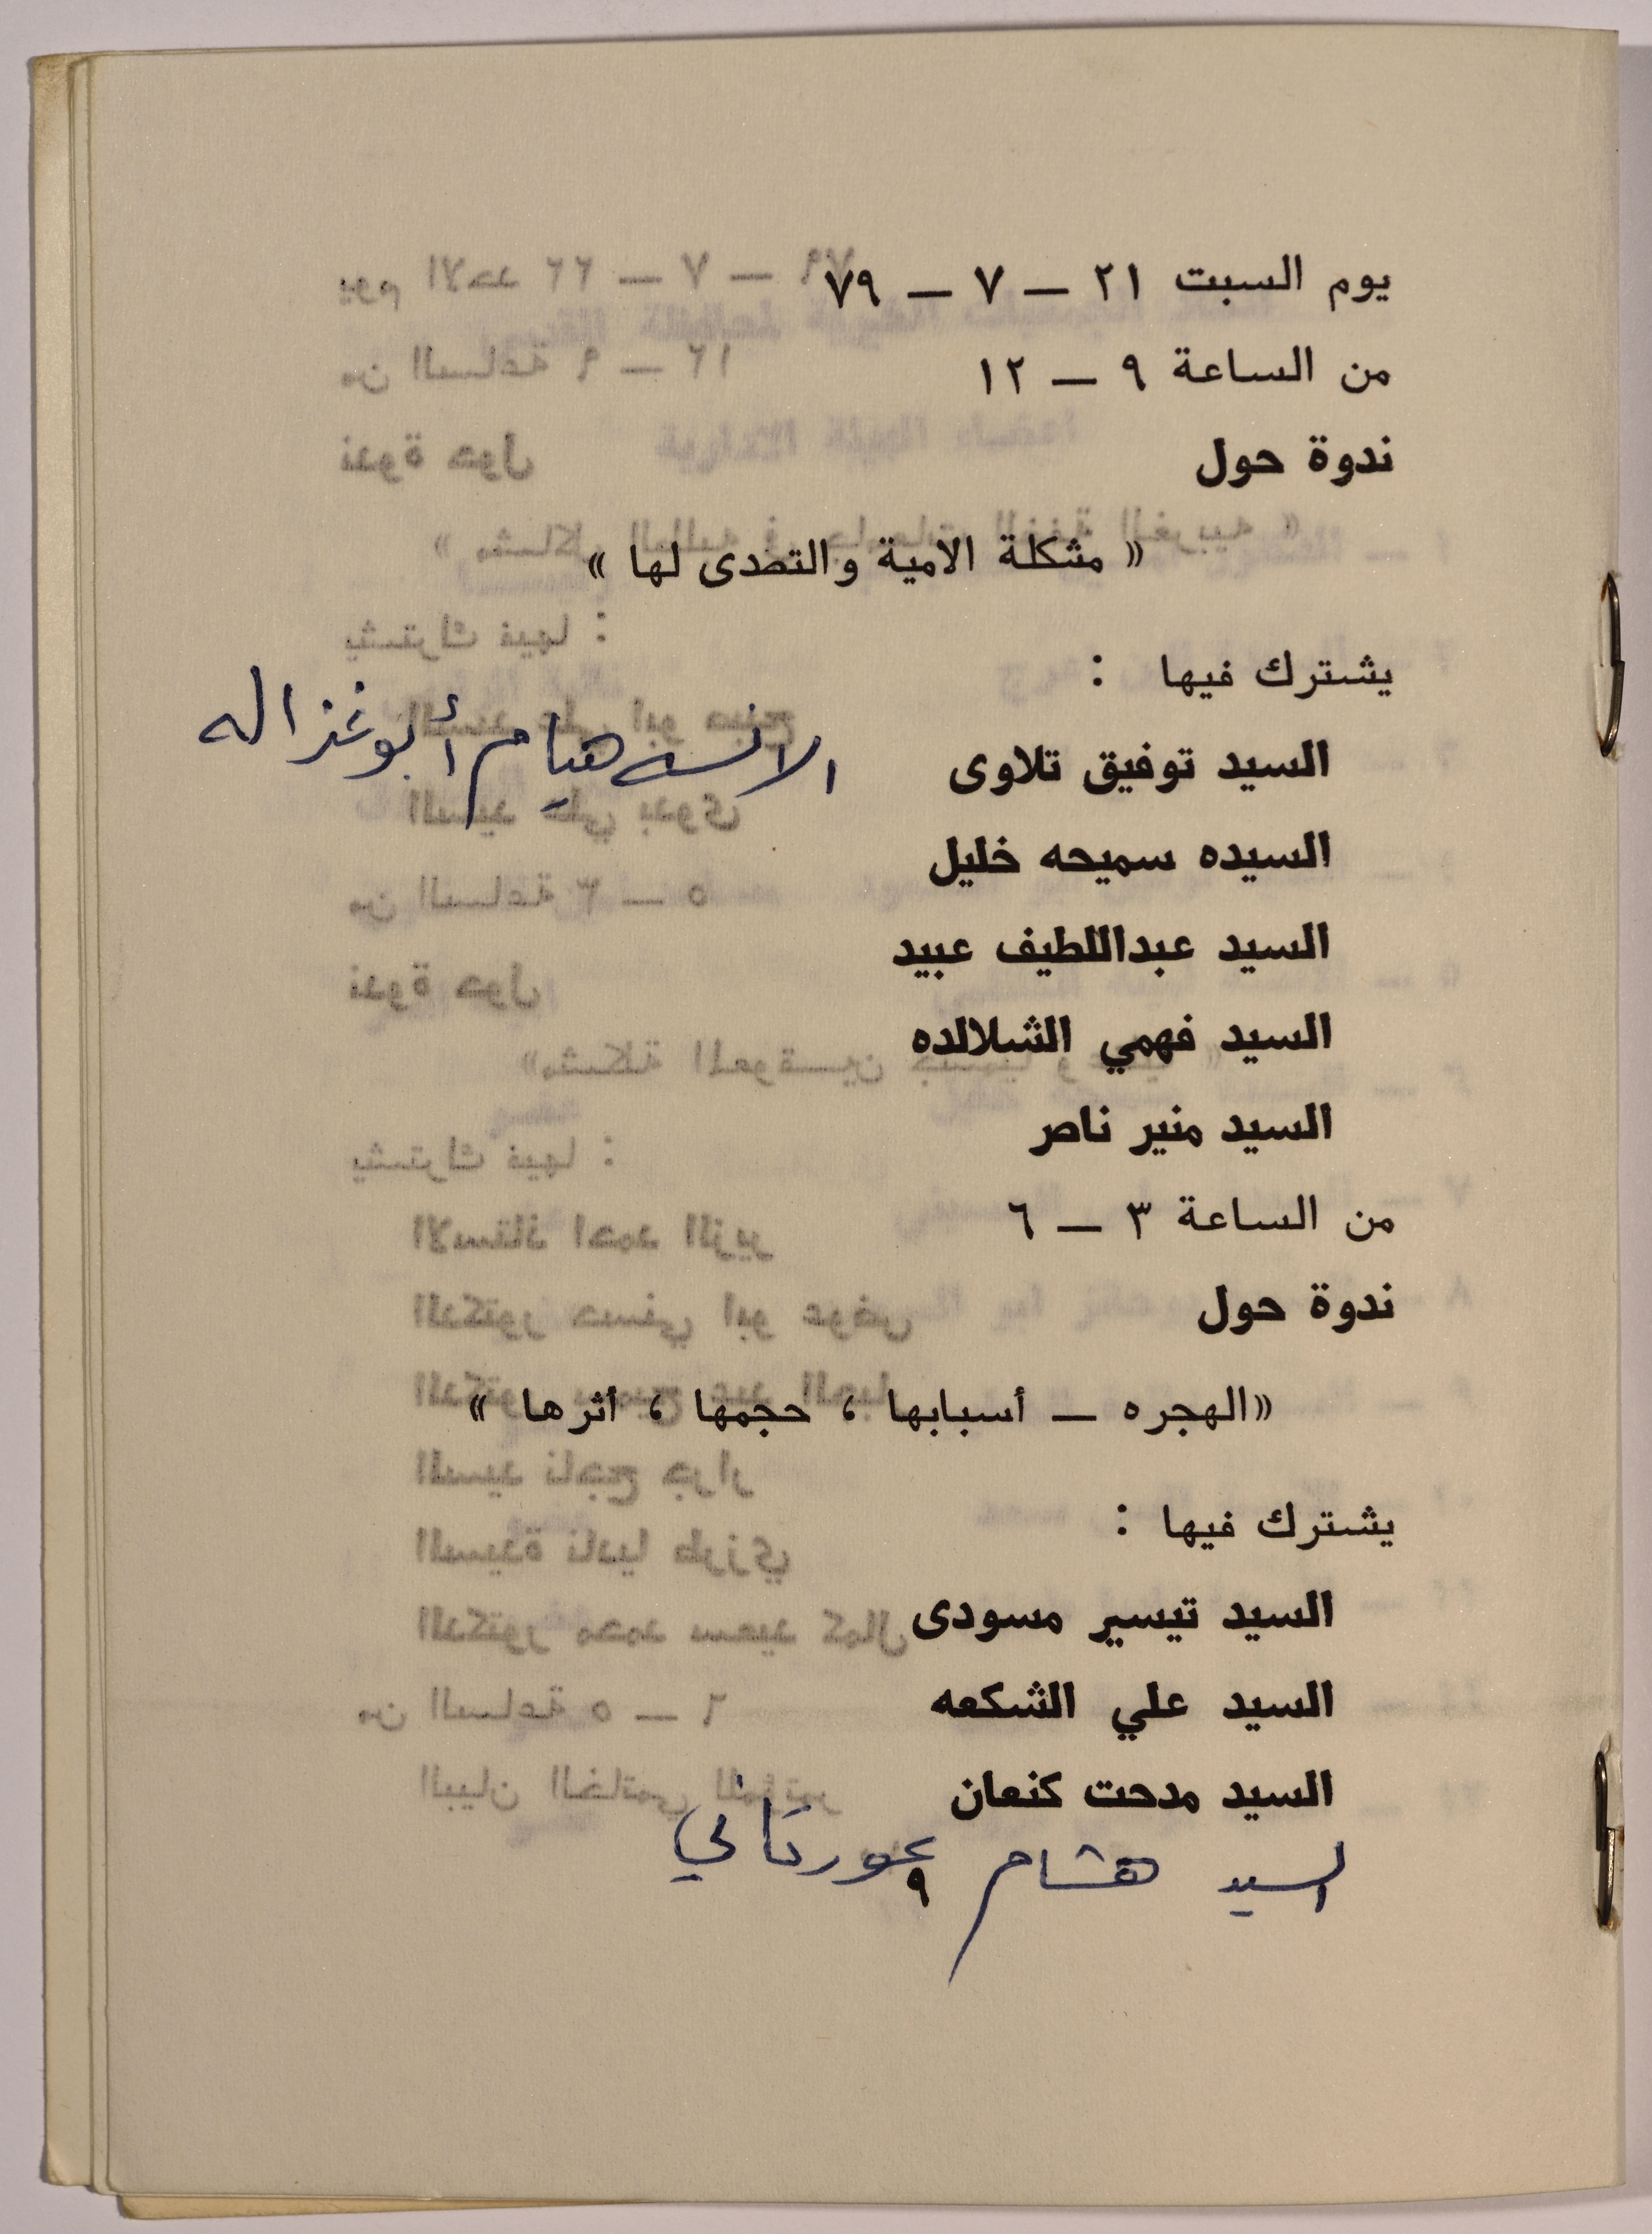 يوم السبت ٢١ — ٧ — ٧٩
من الساعة ٩ — ١٢
ندوة حول
« مشكلة الامية والتصدى لها »
يشترك فيها :
السيد توفيق تلاوى
الانسه هيام أبو غزاله
السيده سميحه خليل
السيد عبداللطيف عبيد
السيد فهمي الشلالده
السيد منير ناصر
من الساعة ٣ — ٦
ندوة حول
«الهجره — أسبابها ، حجمها ، أثرها »
يشترك فيها :
السيد تيسير مسودى
السيد علي الشكعه
السيد مدحت كنعان
السيد هشام عورتاني
٩